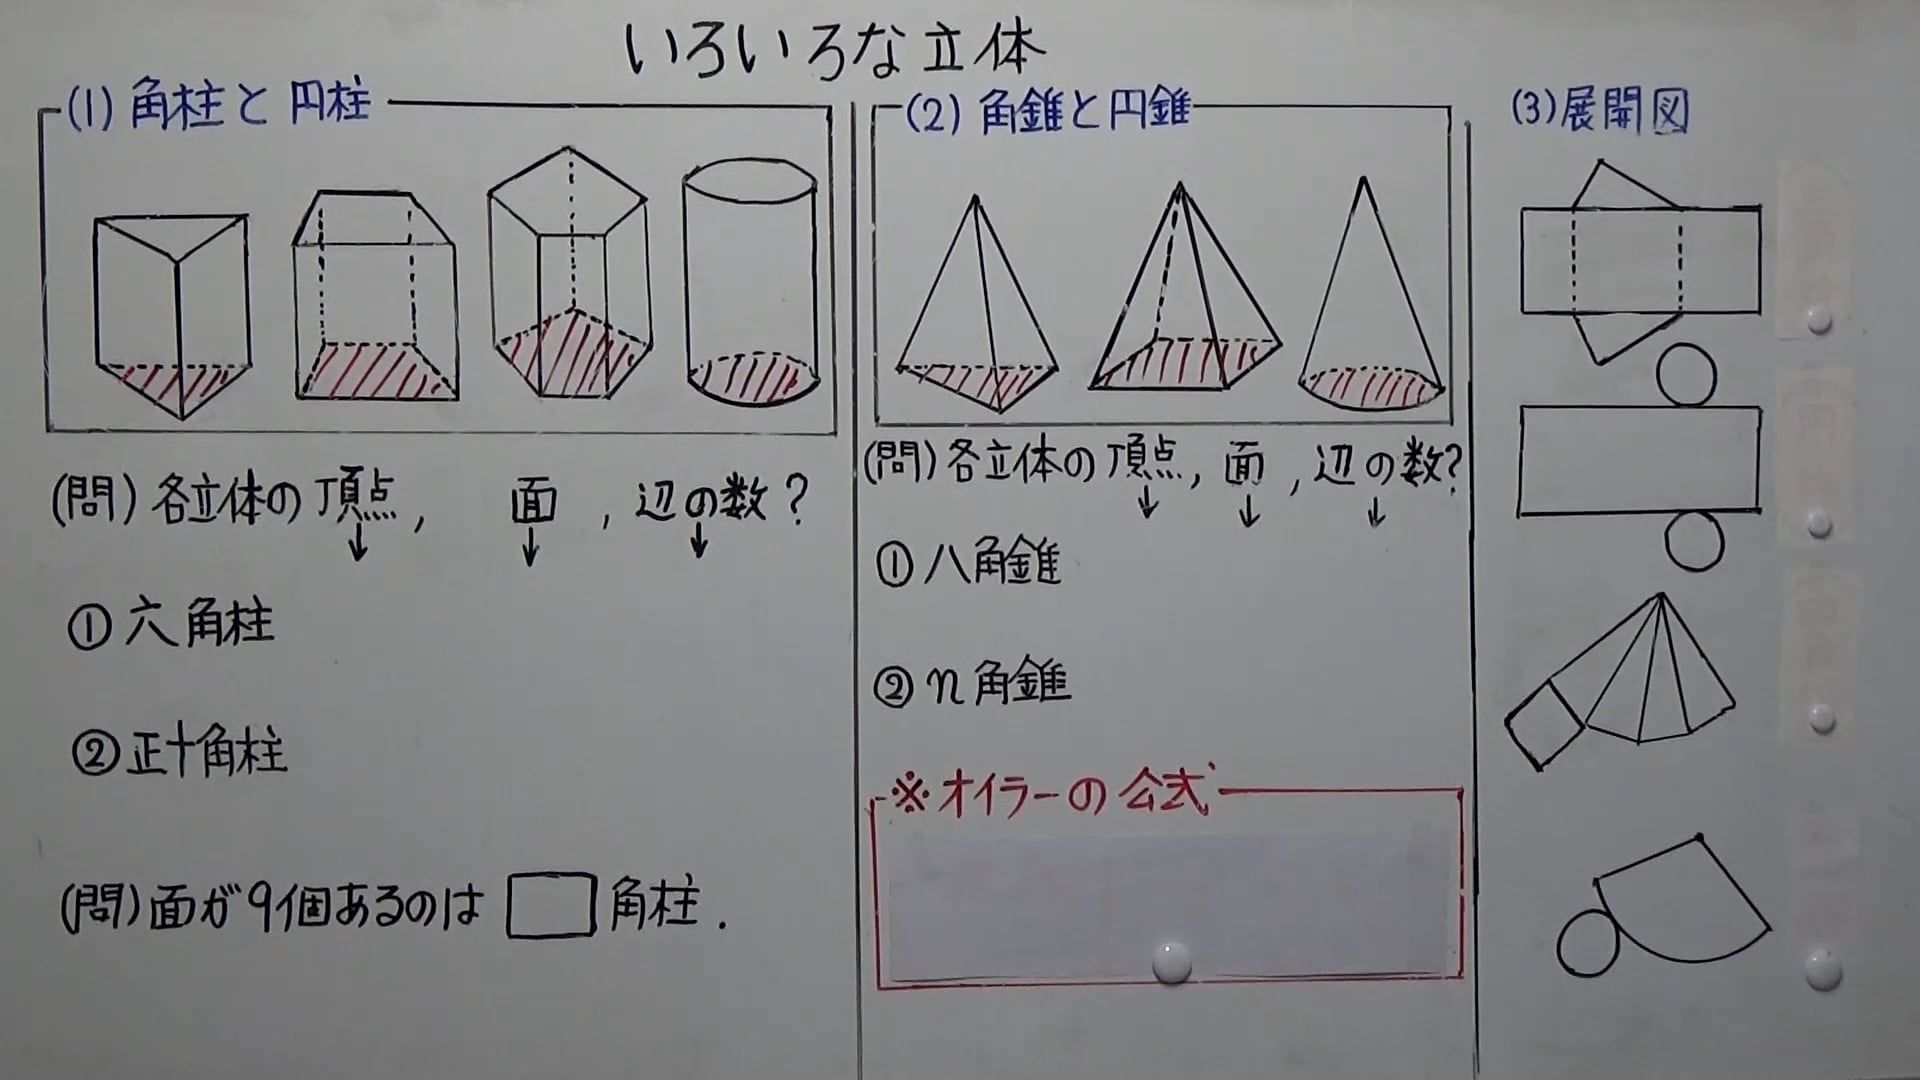 いろいろな立体
(1) 角柱と円柱
(問) 各立体の頂点, 面, 辺の数?
↓ ↓ ↓
① 六角柱
② 正十角柱
(問) 面が9個あるのは □ 角柱.
(2) 角錐と円錐
(問) 各立体の頂点, 面, 辺の数?
↓ ↓ ↓
① 八角錐
② n角錐
※オイラーの公式
(3) 展開図